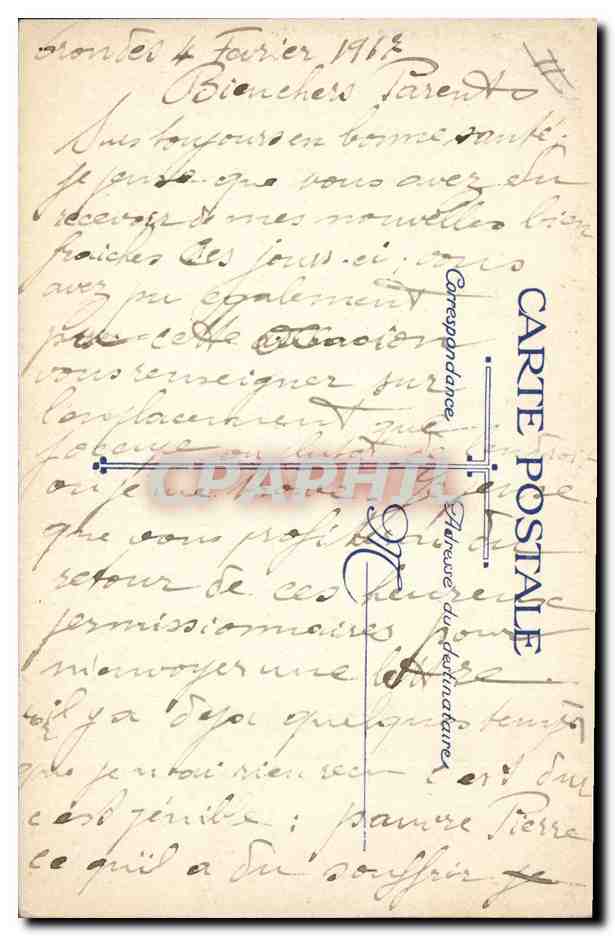 4 Fevrier 1917
Bien chers Parents
Suis toujours en bonne santé;
je pense que vous avez du
recevoir de mes nouvelles bien
fraiches ces jours-ci; vous
avez pu également
par cette occasion
vous renseigner sur
l'emplacement que
j'occupe ou plutot
ou je me trouve. Je pense
que vous profiterez du
retour de ces heureux
permissionnaires pour
m'envoyer une lettre
il y a deja quelques temps
que je n'ai rien recu c'est dur
c'est pénible: pauvre Pierre
ce qu'il a du souffrir je
II
15
CARTE POSTALE
Correspondance
Adresse du destinataire
M
CPARPHIL